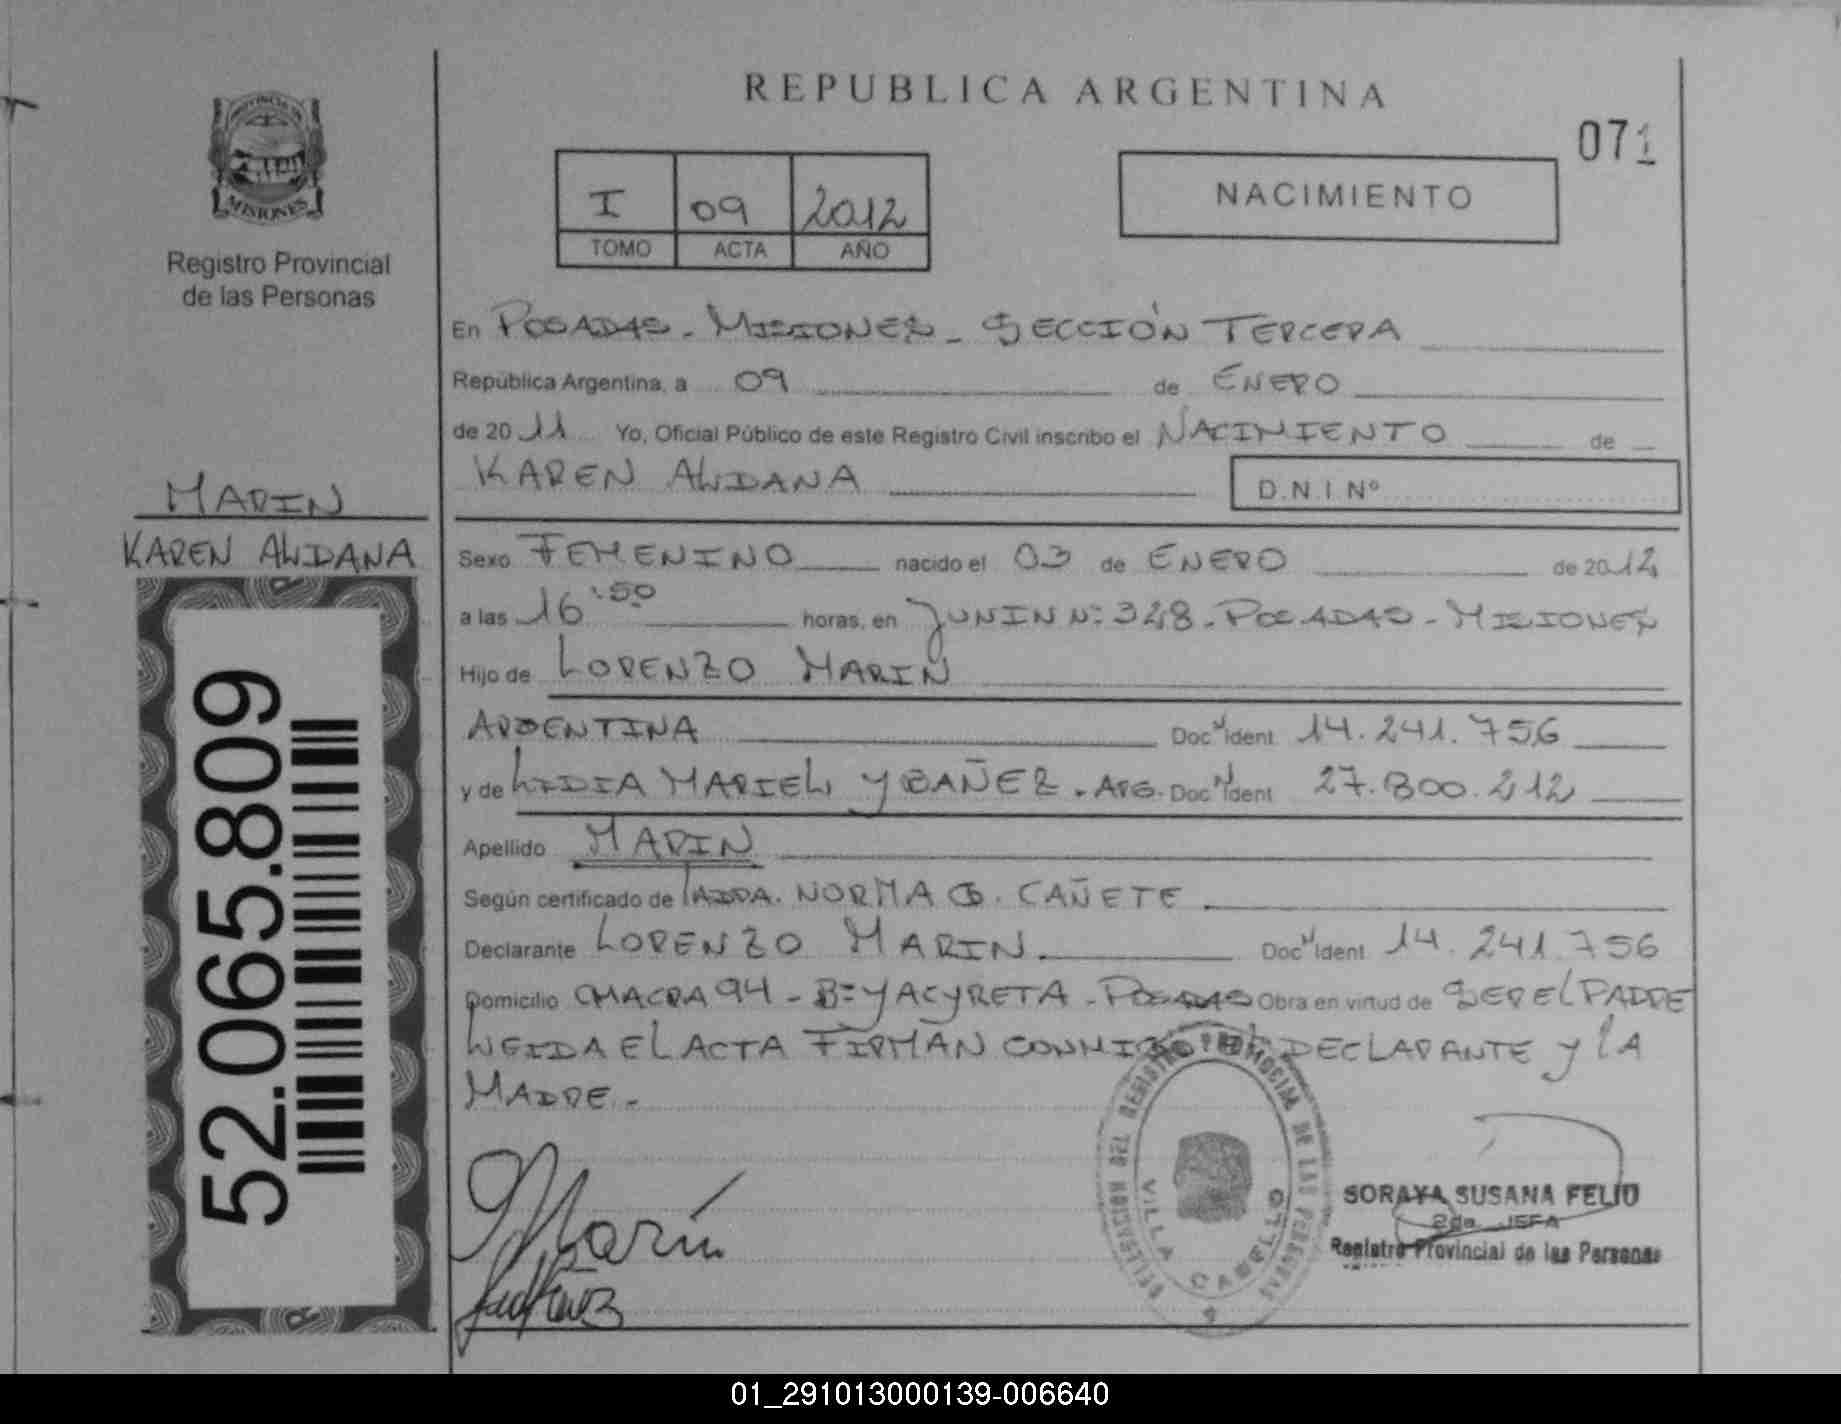 REPUBLICA ARGENTINA
071
MISIONES
Registro Provincial
de las Personas
I 09 2012
TOMO ACTA AÑO
NACIMIENTO
En POSADAS - MISIONES - SECCIÓN TERCERA
República Argentina, a 09 de ENERO
de 2011 Yo, Oficial Público de este Registro Civil inscribo el NACIMIENTO de
KAREN ALDANA
D.N.I Nº
MARIN
KAREN ALDANA
52.065.809
Sexo FEMENINO nacido el 03 de ENERO de 2012
a las 16:50 horas, en JUNIN Nº 348 - POSADAS - MISIONES
Hijo de LORENZO MARIN
ARGENTINA Doc Ident 14.241.756
y de LIDIA MARIEL YBAÑEZ. ARG. Doc Ident 27.800.212
Apellido MARIN
Según certificado de NORMA CAÑETE
Declarante LORENZO MARIN. Doc Ident 14.241.756
Domicilio CHACRA 94 - Bº YACYRETA - POSADAS Obra en virtud de SER EL PADRE
LEIDA EL ACTA FIRMAN CONMIGO EL DECLARANTE Y LA
MADRE.-
Marín
DELEGACION DEL REGISTRO PROVINCIAL DE LAS PERSONAS
VILLA CABELLO
SORAYA SUSANA FELIU
2da JEFA
Registro Provincial de las Personas
01_291013000139-006640